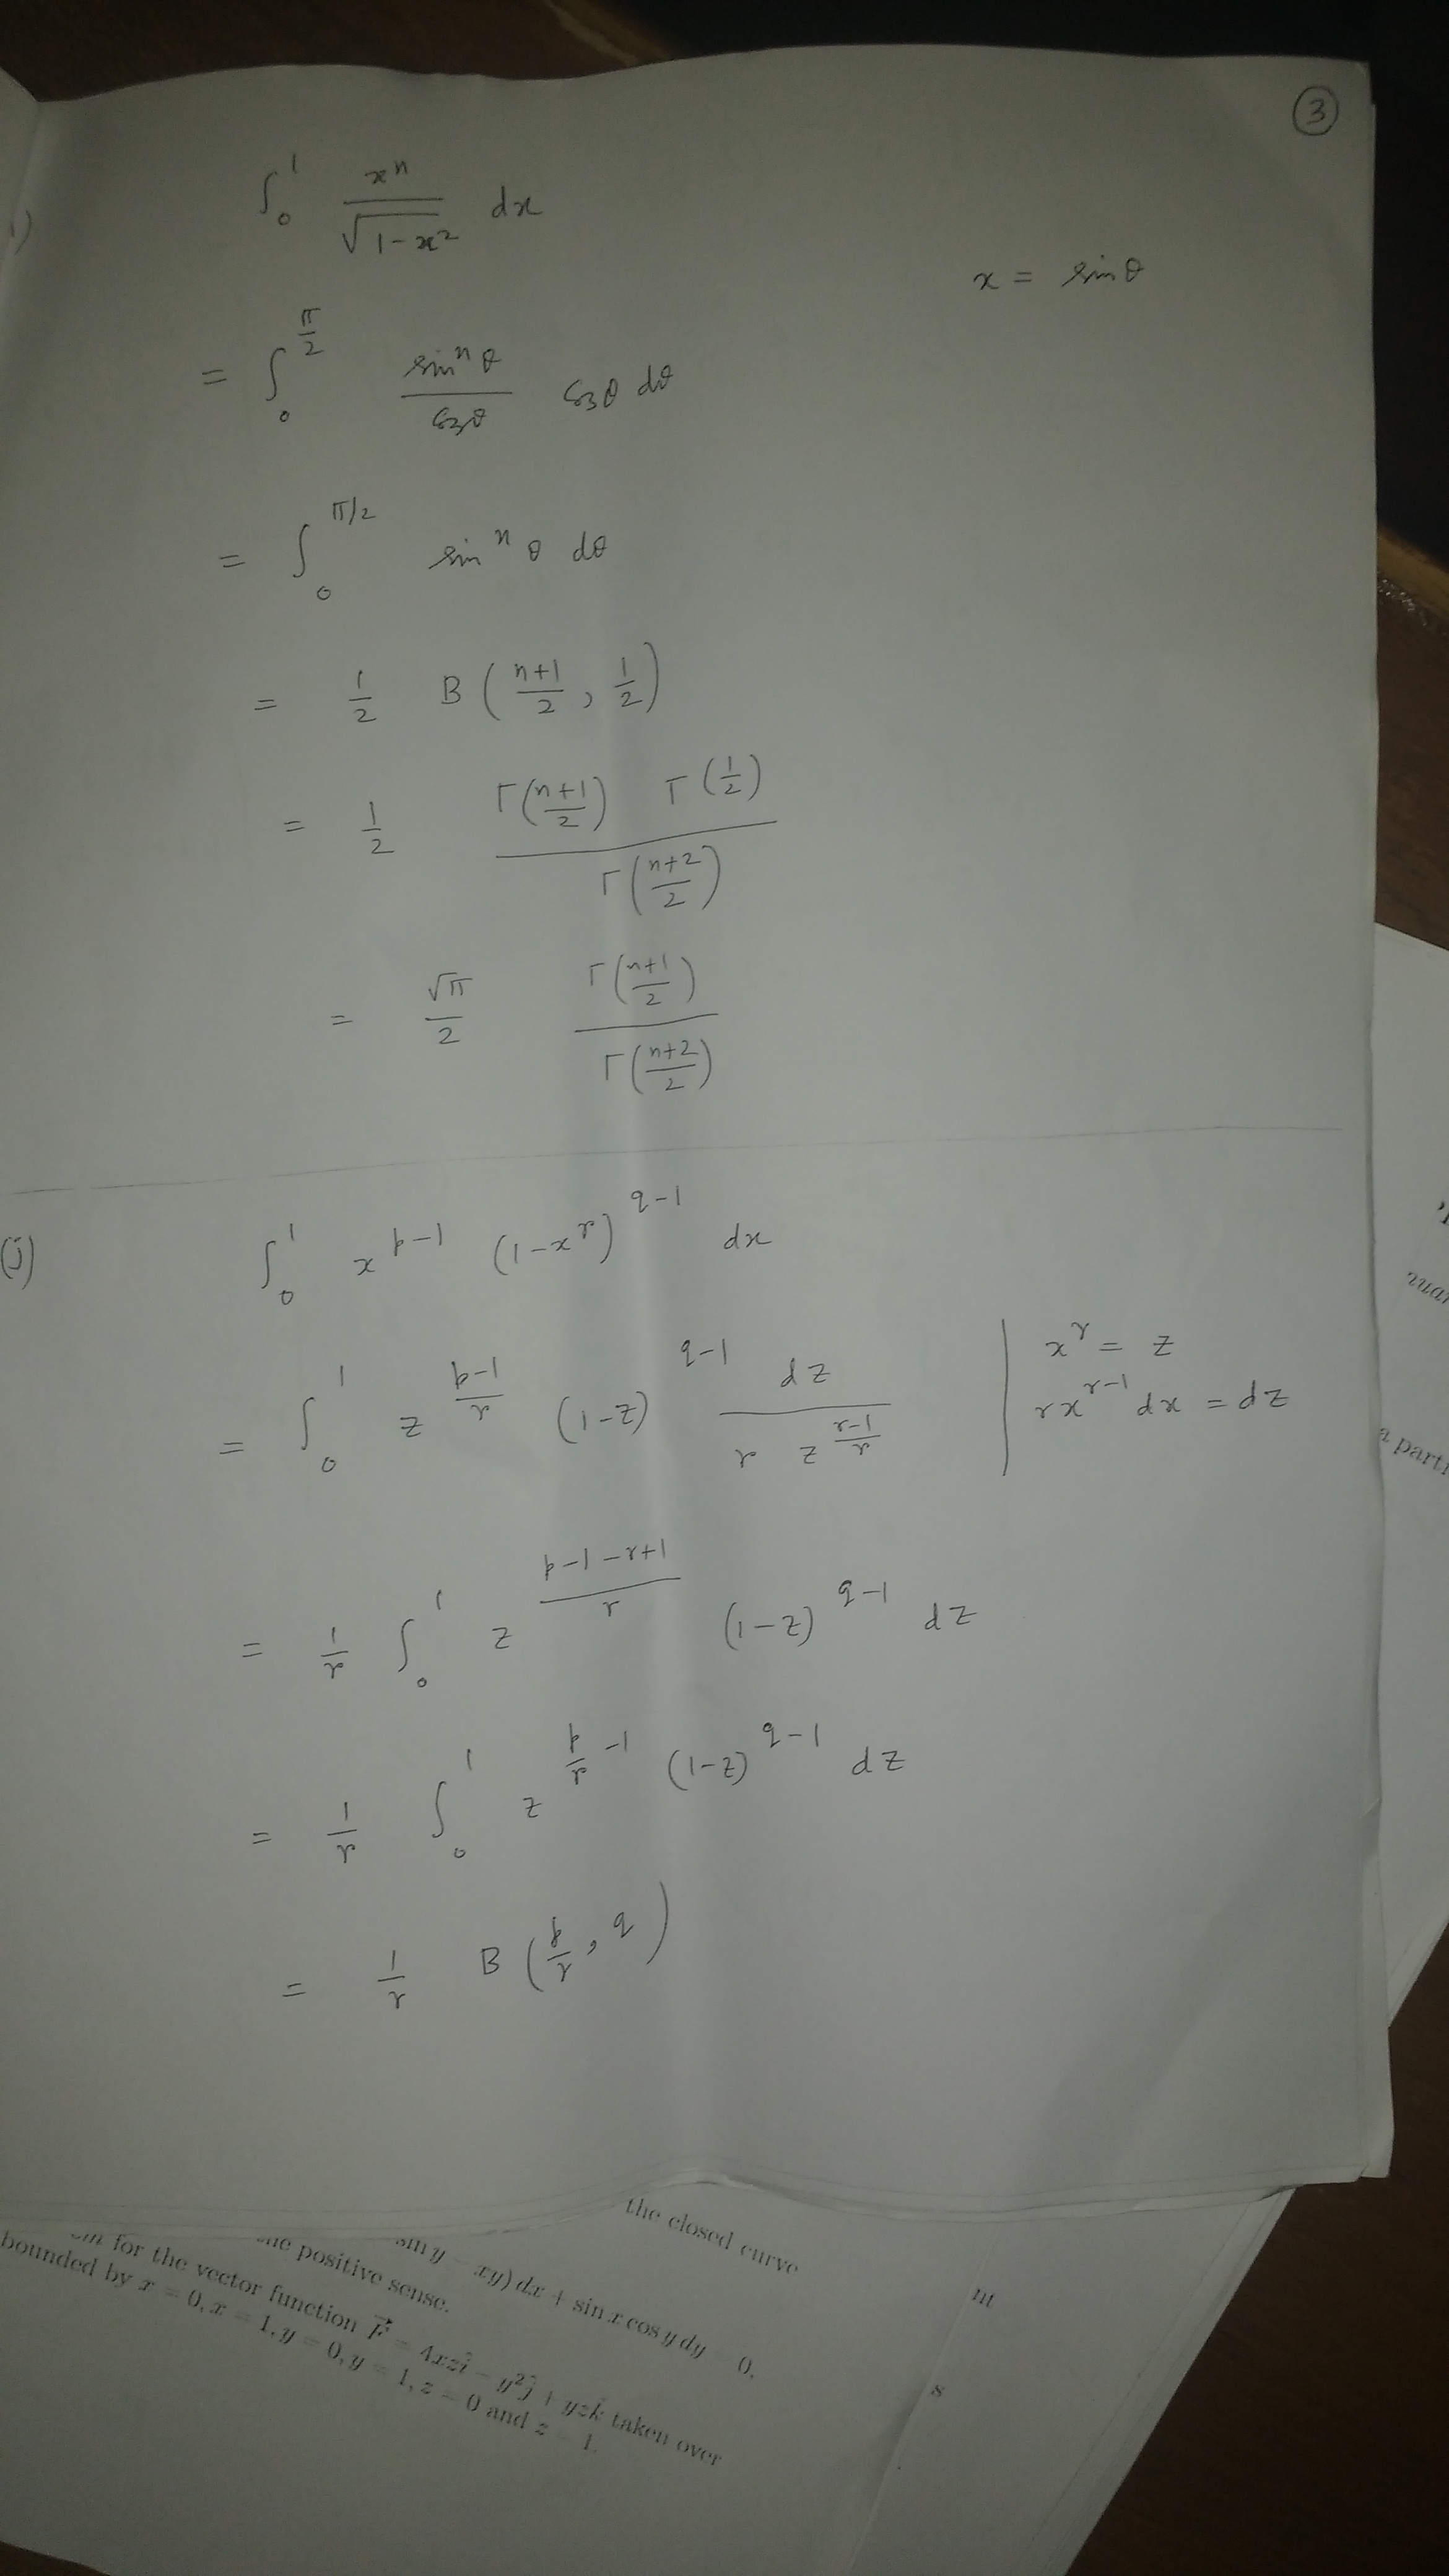 3
i)
∫₀¹ xⁿ/√(1-x²) dx
x = sinθ
= ∫₀^(π/2) (sinⁿθ/cosθ) cosθ dθ
= ∫₀^(π/2) sinⁿθ dθ
= 1/2 B((n+1)/2, 1/2)
= 1/2 Γ((n+1)/2) Γ(1/2) / Γ((n+2)/2)
= √π/2 Γ((n+1)/2) / Γ((n+2)/2)
(j) ∫₀¹ x^(p-1) (1-x^r)^(q-1) dx
= ∫₀¹ z^((p-1)/r) (1-z)^(q-1) dz / (r z^((r-1)/r))
x^r = z
r x^(r-1) dx = dz
= 1/r ∫₀¹ z^((p-1-r+1)/r) (1-z)^(q-1) dz
= 1/r ∫₀¹ z^(p/r -1) (1-z)^(q-1) dz
= 1/r B(p/r, q)
a parti
the closed curve
sin y - xy) dx + sin x cos y dy = 0.
positive sense.
for the vector function F⃗ = 4xzî - y²ĵ + yzk̂ taken over
bounded by x = 0, x = 1, y = 0, y = 1, z = 0 and z = 1.